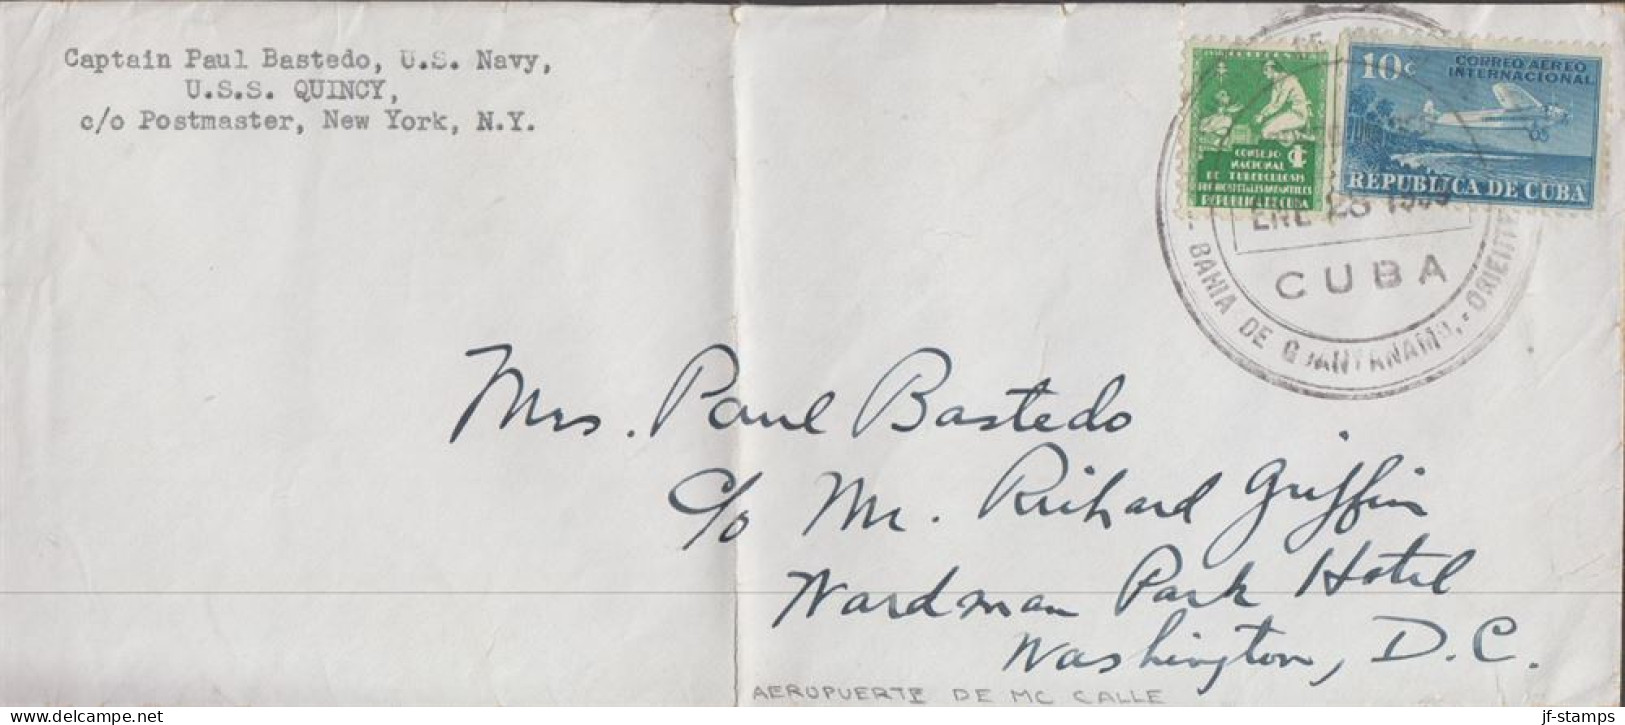 Captain Paul Bastedo, U.S. Navy,
U.S.S. QUINCY,
c/o Postmaster, New York, N.Y.
CONSEJO 1¢
NACIONAL
DE TUBERCULOSIS
PRO HOSPITALES INFANTILES
REPUBLICA DE CUBA
10¢ CORREO AEREO
INTERNACIONAL
REPUBLICA DE CUBA
ENE 28
CUBA
BAHIA DE GUANTANAMO,-ORIENTE
Mrs. Paul Bastedo
c/o Mr. Richard Griffin
Wardman Park Hotel
Washington, D.C.
AEROPUERTE DE MC CALLE
jf-stamps